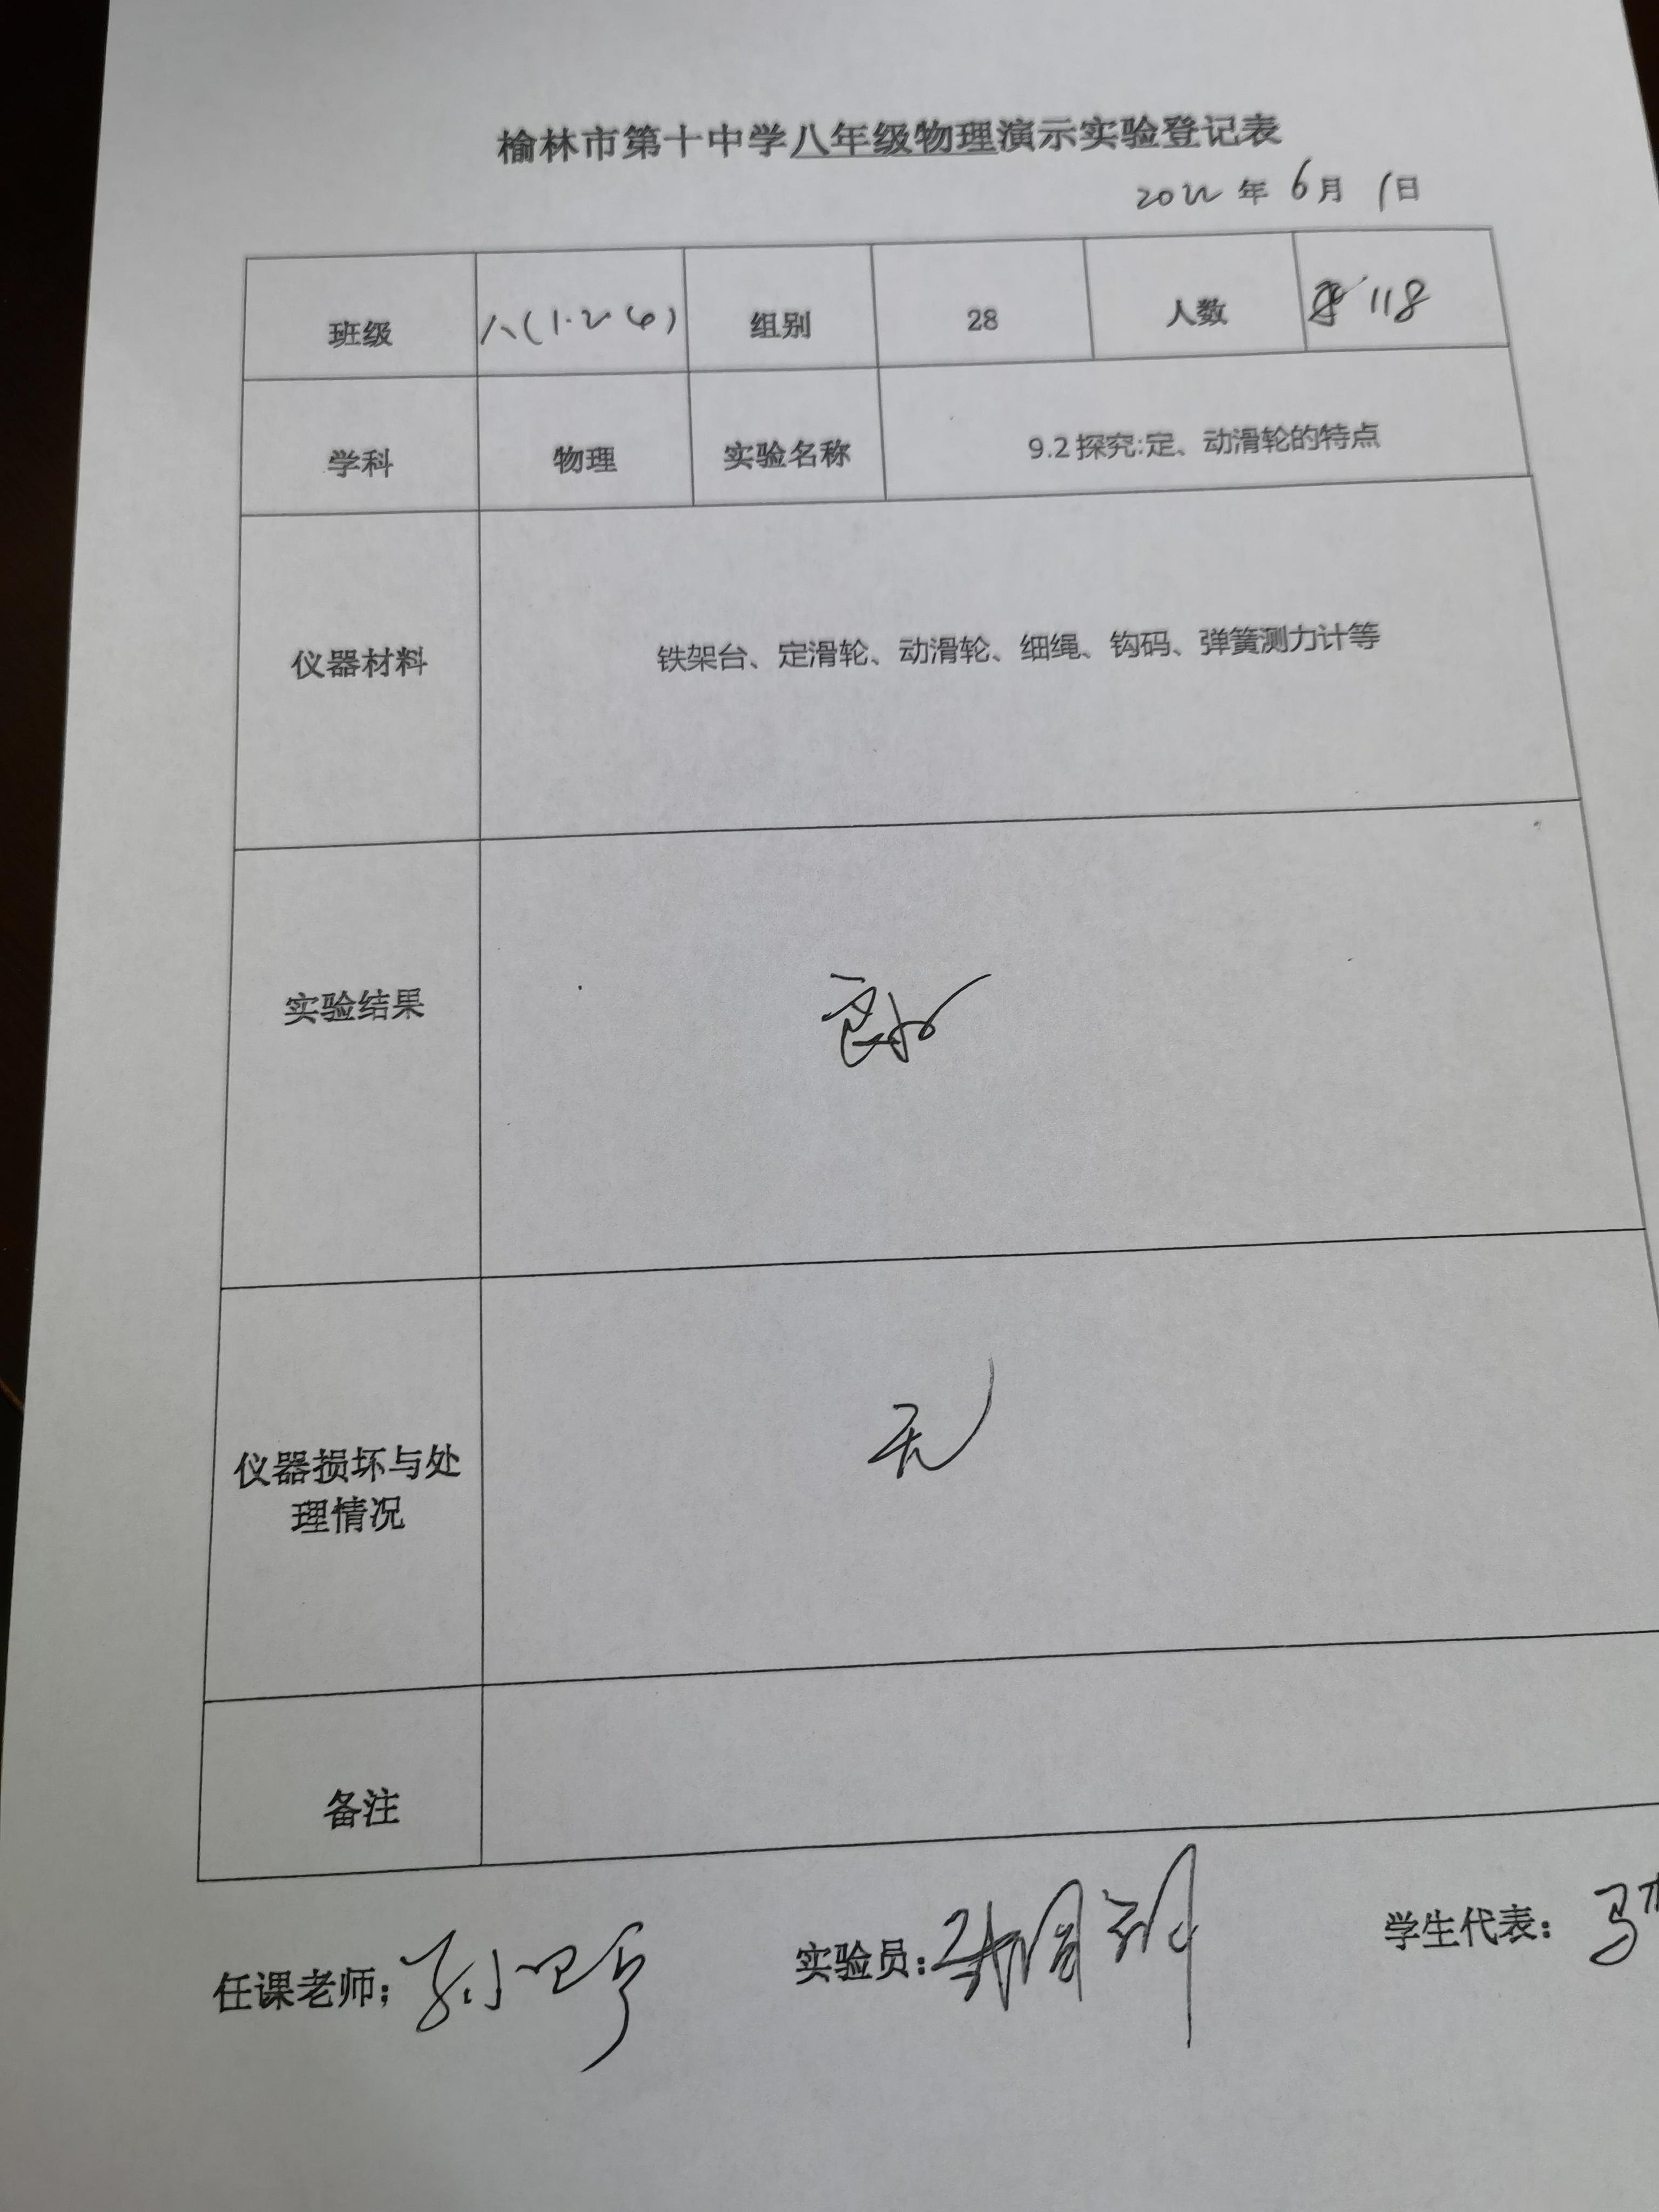 榆林市第十中学八年级物理演示实验登记表
2022 年 6 月 1 日
班级 八(1.2 6) 组别 28 人数 118
学科 物理 实验名称 9.2 探究:定、动滑轮的特点
仪器材料 铁架台、定滑轮、动滑轮、细绳、钩码、弹簧测力计等
实验结果 良好
仪器损坏与处
理情况 无
备注
任课老师: 实验员: 学生代表: 马